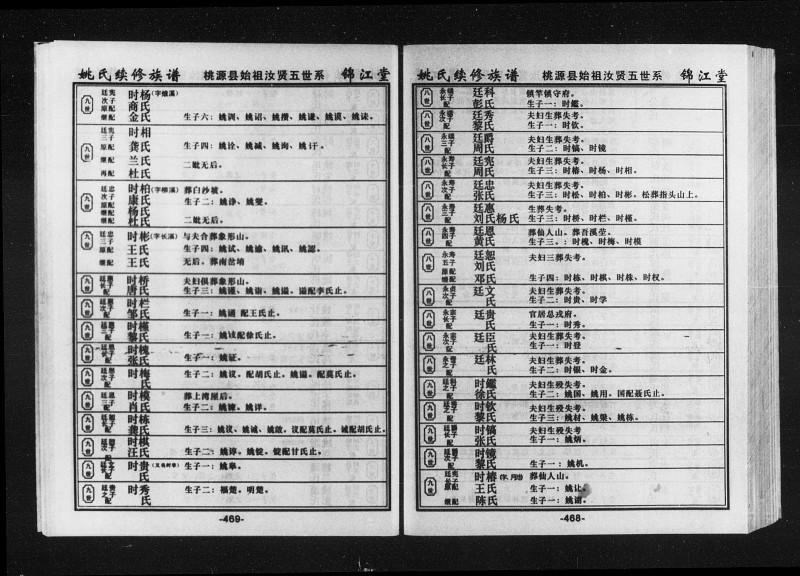 姚氏续修族谱 桃源县始祖汝贤五世系 锦江堂
八世 永 长子 配 廷科 彭氏 镇竿镇守府。
生子一：时鑑。
八世 永 次子 配 廷秀 黎氏 夫妇生葬失考。
生子一：时钦。
八世 永 三子 配 廷爵 周氏 夫妇生葬失考。
生子二：时镐、时镜
八世 永寿 长子 配 廷宪 周氏 夫妇生葬失考。
生子三：时椿、时杨、时相。
八世 永寿 次子 配 廷忠 张氏 夫妇生葬失考。
生子三：时松、时柏、时彬。松葬指头山上。
八世 永寿 三子 配 廷惠 刘氏杨氏 生葬失考。
生子三：时桥、时栏、时槿。
八世 永寿 四子 配 廷恩 黄氏 葬仙人山。葬吾溪茔。
生子三：时槐、时梅、时模
八世 永寿 五子 原配 继配 廷恕 刘氏 邓氏 夫妇三葬失考。
生子四：时栋、时棋、时株、时权。
八世 永贞 次子 配 廷文 氏 夫妇生葬失考。
生子二：时贵、时学
八世 永 长子 配 廷贵 氏 官居总戎府。
生子一：时秀。
八世 永 次子 配 廷臣 氏 夫妇生葬失考。
生子一：时登
八世 永 之子 配 廷林 氏 夫妇生葬失考。
生子二：时银、时金。
九世 廷科 之子 配 时鑑 徐氏 夫妇生殁失考。
生子二：姚国、姚用。国配聂氏止。
九世 廷秀 之子 配 时钦 黎氏 夫妇生殁失考。
生子三：姚材、姚梁、姚栋。
九世 廷爵 长子 配 时镐 张氏 夫妇生殁失考
生子一：姚炳。
九世 廷爵 次子 配 时镜 黎氏
生子一：姚机。
九世 廷宪 长子 原配 继配 时椿 王氏 陈氏 葬仙人山。
生子一：姚让。
生子一：姚谱。
-468-
姚氏续修族谱 桃源县始祖汝贤五世系 锦江堂
九世 廷宪 次子 原配 继配 时杨(字 溪) 商氏 金氏
生子六：姚训、姚诏、姚 、姚谦、姚谟、姚读。
九世 廷宪 三子 原配 继配 再配 时相 龚氏 兰氏 杜氏
生子四：姚诠、姚诚、姚询、姚讦。
二妣无后。
九世 廷忠 次子 原配 继配 继配 时柏(字 溪) 康氏 杨氏 杜氏 葬白沙坡。
生子二：姚诤、姚燮。
二妣无后。
九世 廷忠 三子 原配 继配 时彬(字长溪) 王氏 王氏 与夫合葬象形山。
生子四：姚试、姚谕、姚讯、姚认。
无后。葬南岔垴
九世 廷惠 长子 配 时桥 唐氏 夫妇俱葬象形山。
生子三：姚谨、姚诣、姚谥。谥配李氏止。
九世 廷惠 次子 配 时栏 邹氏
生子一：姚通 配王氏止。
九世 廷惠 三子 配 时槿 黎氏
生子一：姚 配徐氏止。
九世 廷恩 长子 配 时槐 张氏
生子一：姚证。
九世 廷恩 次子 配 时梅 氏
生子二：姚议。配胡氏止。姚谥。配莫氏止。
九世 廷恩 三子 配 时模 肖氏 葬上湾屋后。
生子二：姚 、姚详。
九世 廷恕 长子 配 时栋 龚氏
生子三：姚议、姚诚、姚 。议配莫氏止。诚配胡氏止。
九世 廷恕 次子 配 时棋 汪氏
生子二：姚谆、姚锭。锭配甘氏止。
九世 廷文 长子 配 时贵 氏
生子一：姚皋。
九世 廷贵 之子 配 时秀 氏
生子二：福楚。明楚。
-469-